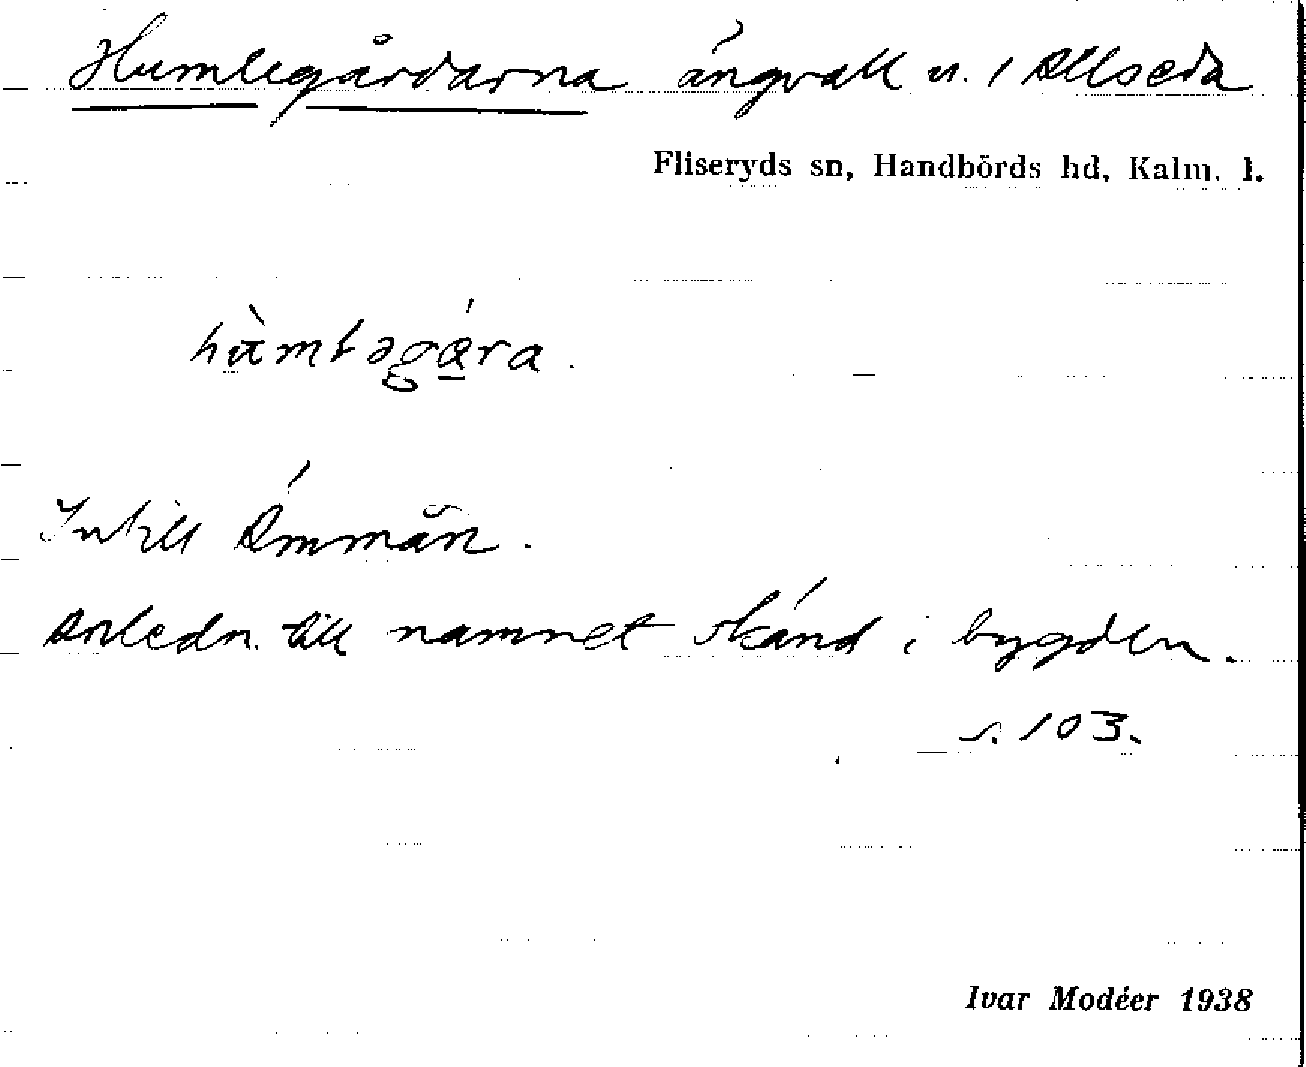 Humlegårdarna ängvall n. 1 Allseda
Fliseryds sn, Handbörds hd, Kalm. l.
Intill Ämmån.
Anledn. till namnet okänd i bygden.
s. 103.
Ivar Modéer 1938